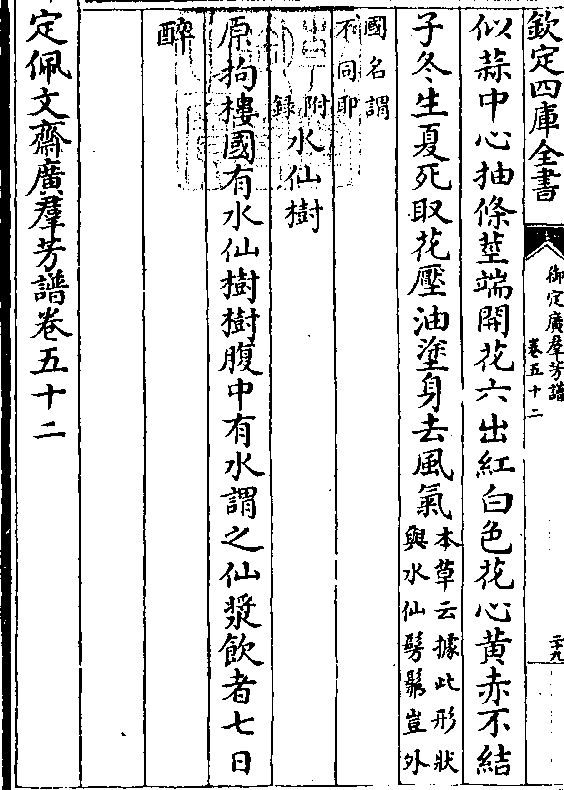 欽定四庫全書
御定廣羣芳譜
卷五十二
二十九
似蒜中心抽條莖端開花六出紅白色花心黄赤不結
子冬生夏死取花壓油塗身去風氣
本草云據此形狀
與水仙髣髴豈外
國名謂
不同耶
附
録
水仙樹
原拘樓國有水仙樹樹腹中有水謂之仙漿飲者七日
醉
定佩文齋廣羣芳譜卷五十二